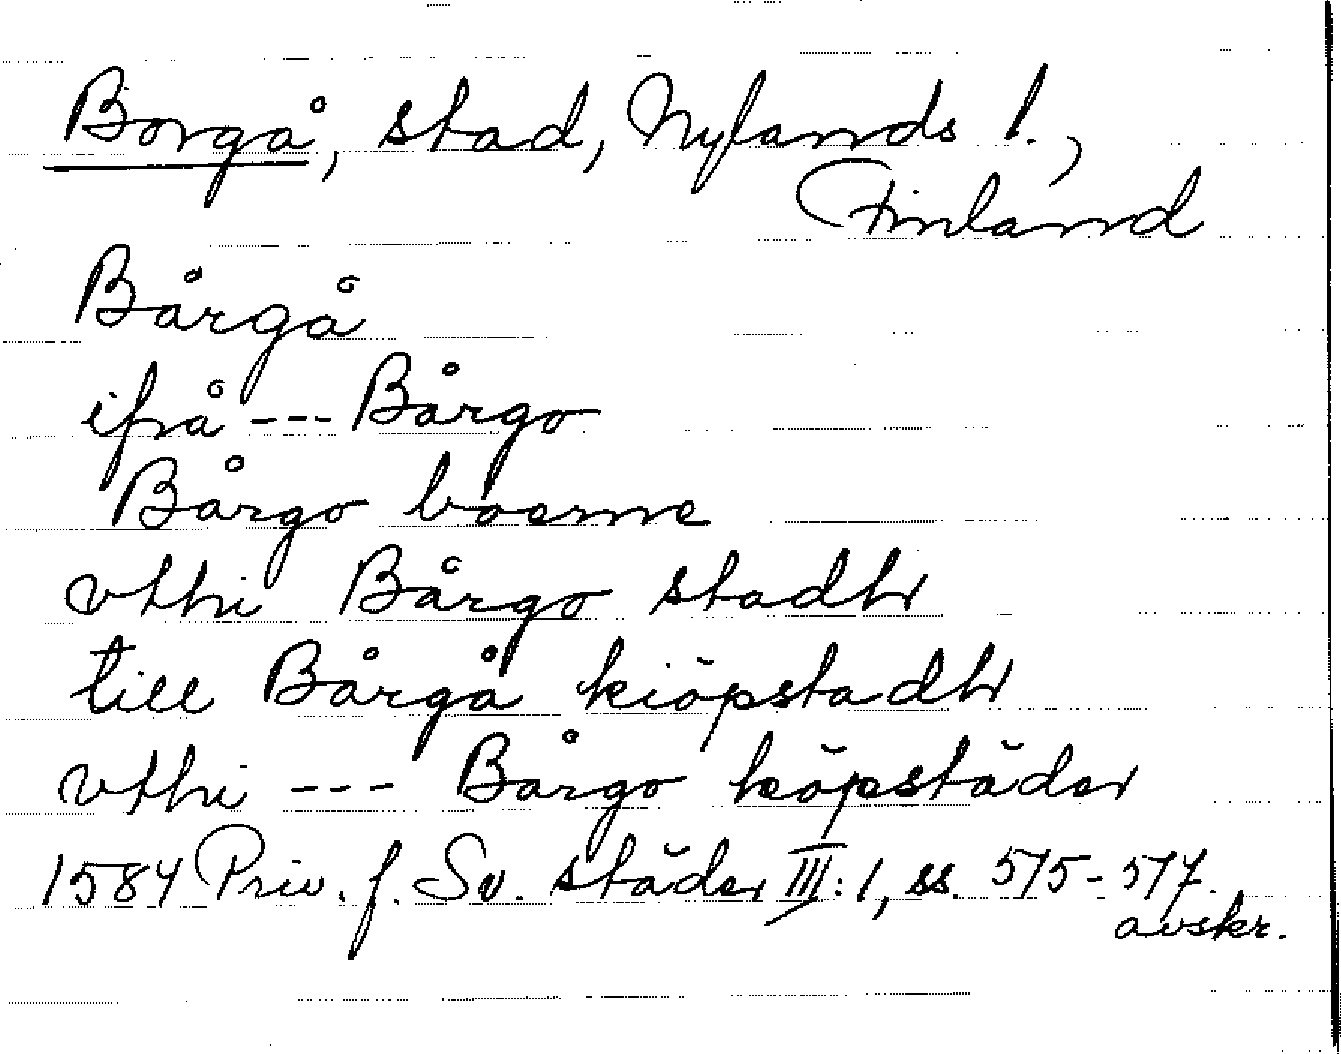 Borgå, stad, Nylands l.,
Finland
Bårgå
ifrå --- Bårgo
Bårgo boerne
vthi Bårgo stadh
till Bårgå kiöpstadh
vthi --- Bårgo köpstäder
1584 Priv. f. Sv. städer III:1, ss. 575-577.
avskr.